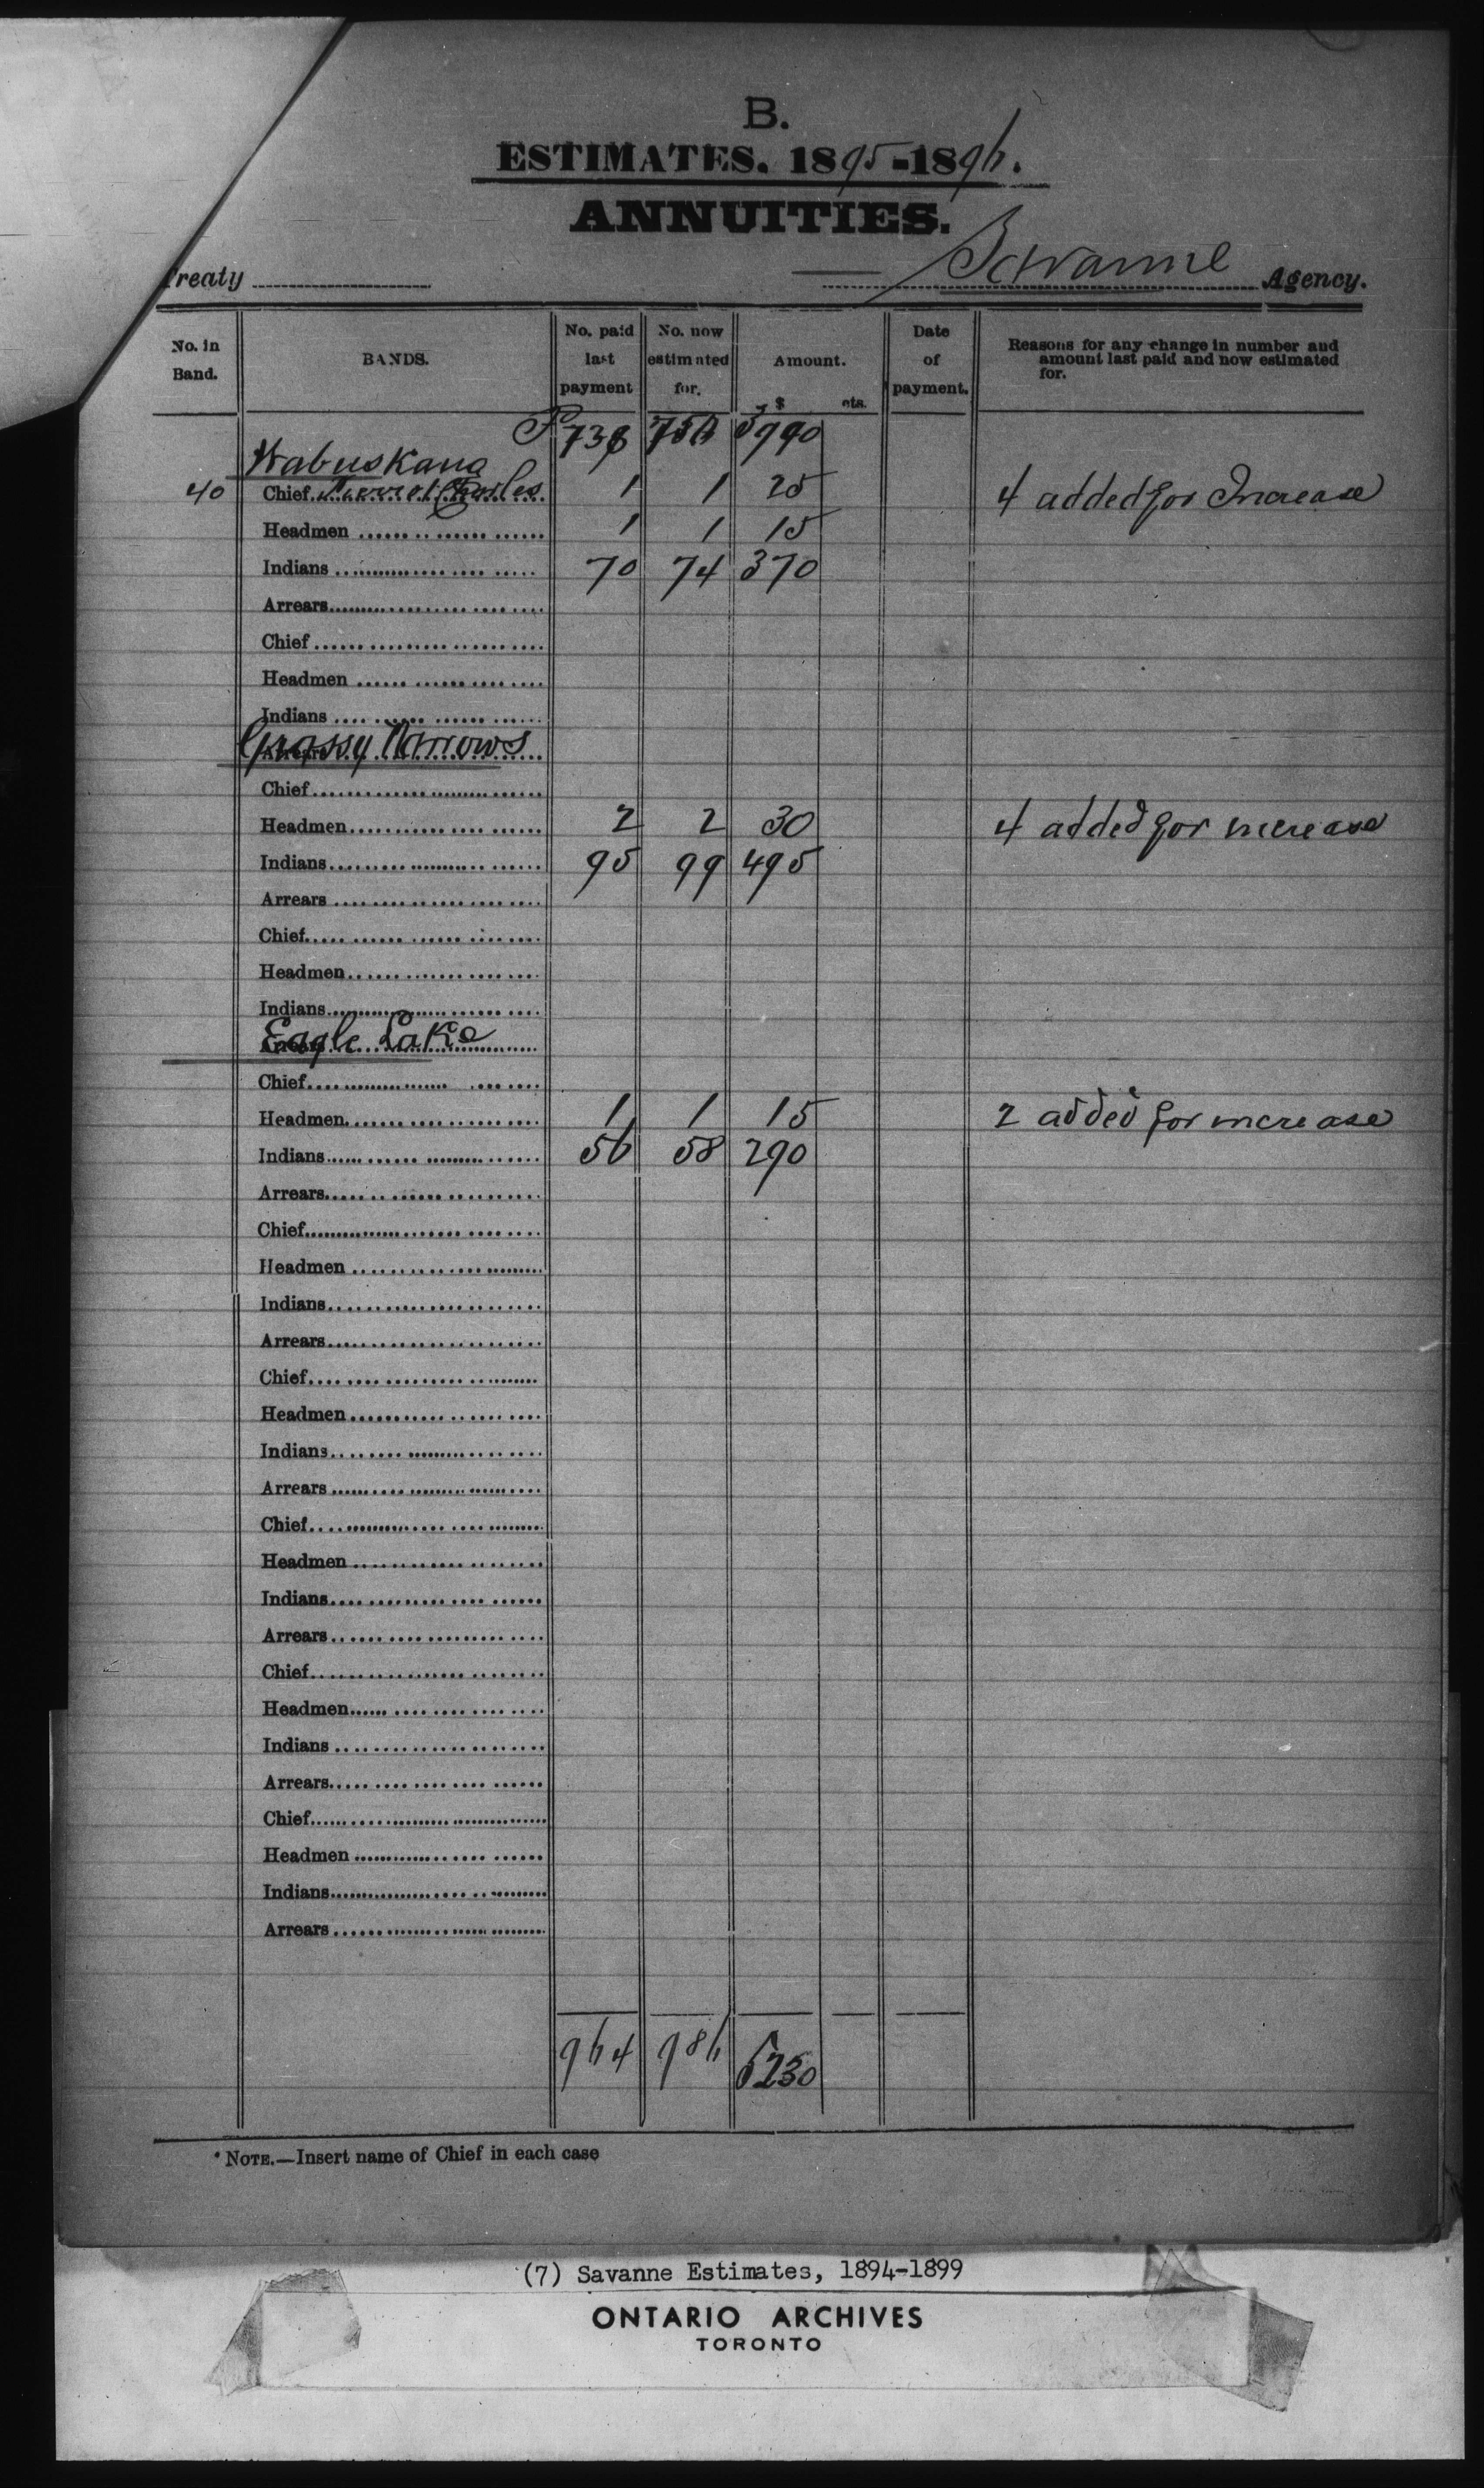 B.
ESTIMATES. 1895-1896.
ANNUITIES.
Treaty Savanne Agency.
No. in Band. BANDS. No. paid last payment No. now estimated for. Amount. $ cts. Date of payment. Reasons for any change in number and amount last paid and now estimated for.
738 750 3990
Wabuskang
40 Chief 1 1 25 4 added for Increase
Headmen 1 1 15
Indians 70 74 370
Arrears
Chief
Headmen
Indians
Grassy Narrows
Arrears
Chief
Headmen 2 2 30 4 added for increase
Indians 95 99 495
Arrears
Chief
Headmen
Indians
Eagle Lake
Arrears
Chief
Headmen 1 1 15 2 added for increase
Indians 56 58 290
Arrears
Chief
Headmen
Indians
Arrears
Chief
Headmen
Indians
Arrears
Chief
Headmen
Indians
Arrears
Chief
Headmen
Indians
Arrears
Chief
Headmen
Indians
Arrears
964 986 5230
* NOTE.—Insert name of Chief in each case
(7) Savanne Estimates, 1894-1899
ONTARIO ARCHIVES
TORONTO